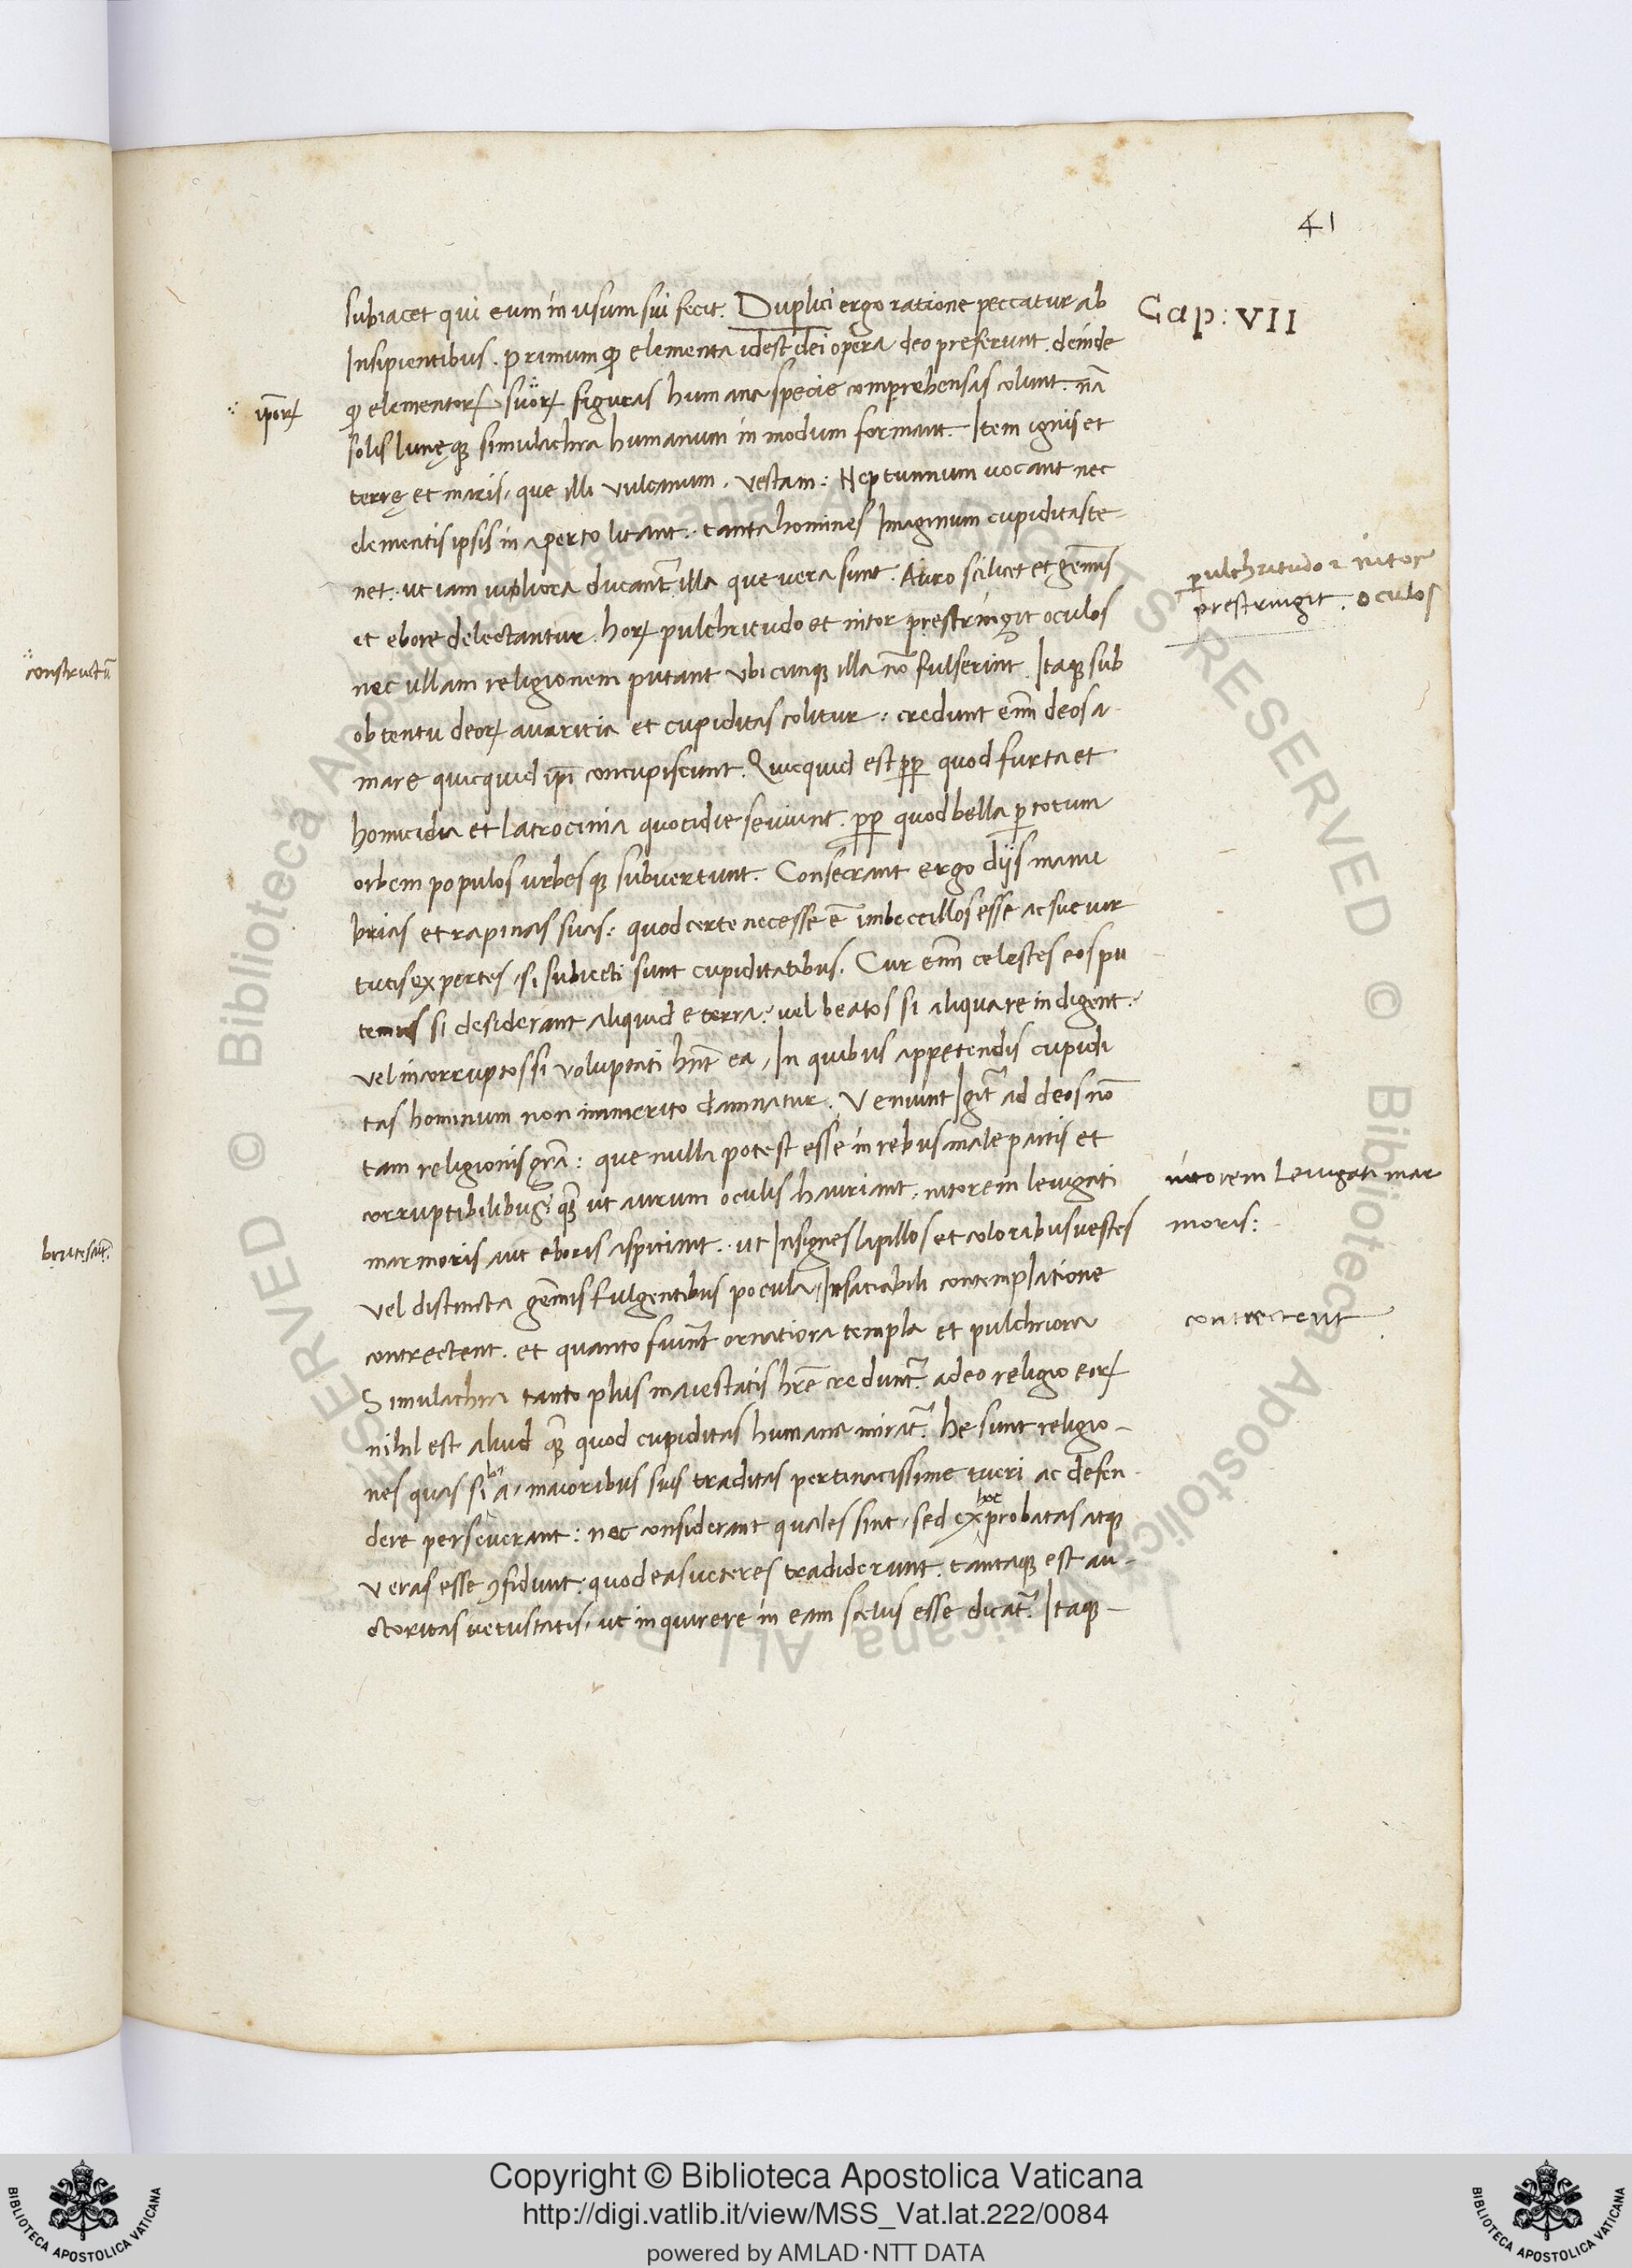 41
subiacet qui eum in usum sui fecit. Duplici ergo ratione peccatur ab
Cap: VII
Insipientibus. primum q̃ elementa idest dei opera deo preferunt. deinde
q̃ elementorꝝ suorꝝ figuras humana specie comprehensas colunt. nã
ip̃orꝝ
solis lunęqꝫ simulachra humanum in modum formant. Item ignis et
terrę et maris, que illi vulcanum, vestam: Neptunnum uocant nec
elementis ipsis in aperto litant. tanta homines Imaginum cupiditas te-
net. ut iam uiliora ducant̃ illa que vera sunt. Auro scilicet et gem̃is
et ebore delectantur. horꝝ pulchritudo et nitor prestringit oculos
pulchritudo ⁊ nitor
prestringit. oculos
nec ullam religionem putant ubicunqꝫ illa nõ fulserint. Itaqꝫ sub
constructũ
obtentu deorꝝ avaricia et cupiditas colitur: credunt em̃ deos a-
mare quicquid ip̃i concupiscunt. Quicquid est pp̃ quod furta et
homicidia et latrocinia quotidie seuiunt. pp̃ quod bella ꝑ totum
orbem populos urbesqꝫ subvertunt. Consecrant ergo dijs manu
brias et rapinas suas: quod certe necesse ẽ imbecillos esse ac sue uir
tutis expertes, si subiecti sunt cupiditatibus. Cur em̃ celestes eos pu
temus si desiderant aliquid e terra? uel beatos si aliqua re indigent.
vel incorruptos si voluptati hñt ea, In quibus appetendis cupidi
tas hominum non immerito damnatur. Veniunt Igit̃ ad deos nõ
tam religionis gr̃a: que nulla potest esse in rebus male partis et
corruptibilibus: qꝫ ut aurum oculis hauriant, nitorem leuigati
nitorem Leuigati mar
moris:
marmoris aut eboris aspiciant. ut Insignes lapillos et coloribus vestes
vel distincta gem̃is fulgentibus pocula, Insaciabili contemplatione
contrectent. et quanto fuerint ornatiora templa et pulchriora
contrectent
Simulachra tanto plus maiestatis hr̃e credunt̃. adeo religio eorꝝ
nihil est aliud qꝫ quod cupiditas humana mirat̃. he sunt religio-
nes quas sibi a, maioribus suis traditas pertinacissime tueri ac defen-
dere perseverant: nec considerant quales sint, sed ex hoc probatas atqꝫ
veras esse ꝯfidunt: quod eas veteres tradiderunt. tantaqꝫ est au-
ctoritas vetustatis, ut inquirere in eam scelus esse dicat̃. Itaqꝫ-
Copyright © Biblioteca Apostolica Vaticana
http://digi.vatlib.it/view/MSS_Vat.lat.222/0084
powered by AMLAD·NTT DATA
BIBLIOTECA APOSTOLICA VATICANA
BIBLIOTECA APOSTOLICA VATICANA